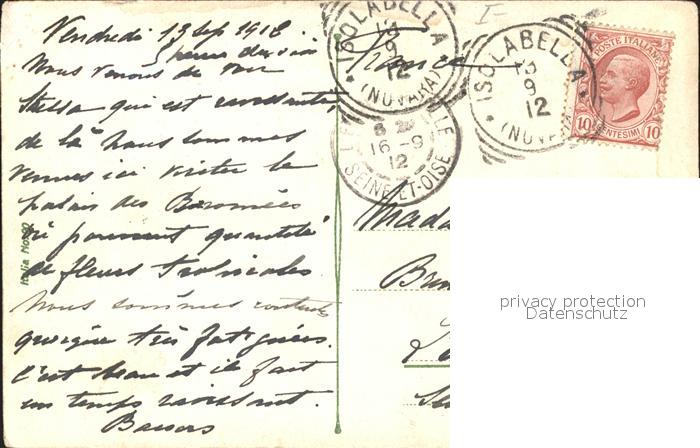 Vendredi 13 Sep 1912
Nous venons de voir
Stresa qui est ravissante,
de là nous sommes
venus ici visiter le
palais des Borromées
où poussent quantité
de fleurs tropicales
Nous sommes contents
quoique très fatiguées.
C'est beau et il fait
un temps ravissant.
Baisers
France
ISOLABELLA
13
9
12
(NOVARA)
ISOLABELLA
13
9
12
(NOVARA)
16 - 9
12
SEINE-ET-OISE
POSTE ITALIANE
10 CENTESIMI 10
Mada
privacy protection
Datenschutz